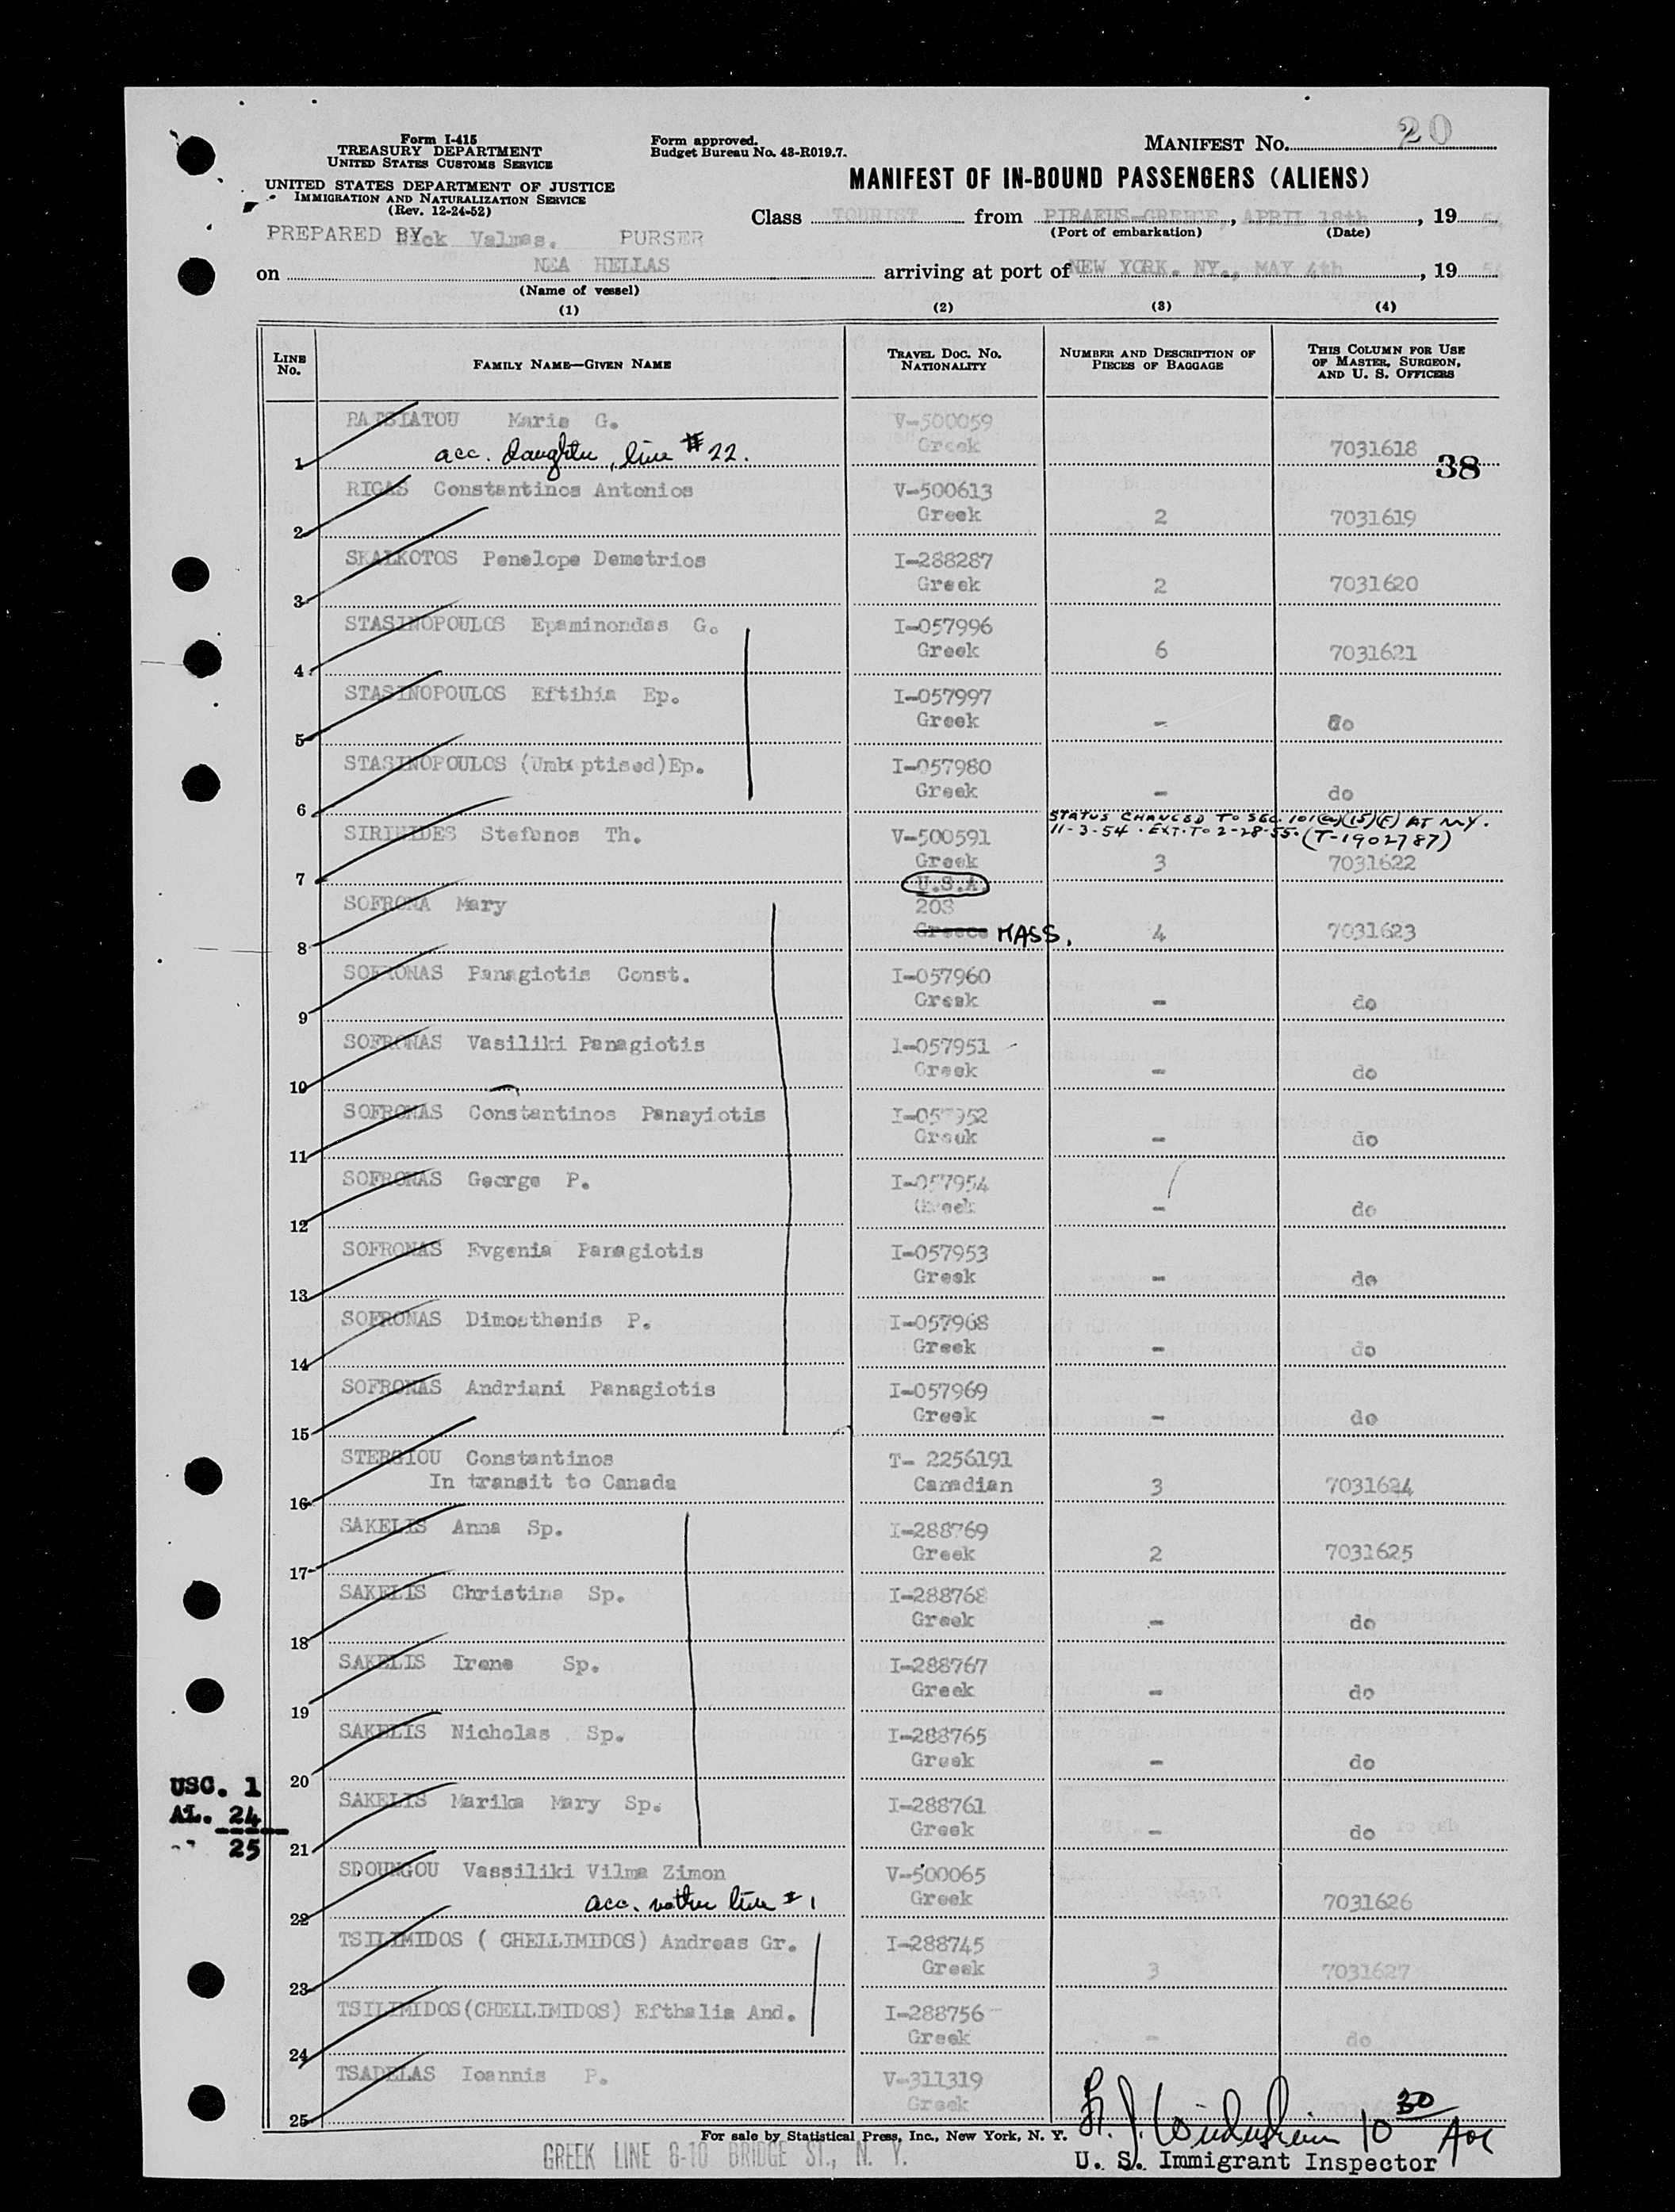 Form I-415
TREASURY DEPARTMENT
UNITED STATES CUSTOMS SERVICE
UNITED STATES DEPARTMENT OF JUSTICE
IMMIGRATION AND NATURALIZATION SERVICE
(Rev. 12-24-52)
Form approved.
Budget Bureau No. 43-R019.7.
MANIFEST No. 20
MANIFEST OF IN-BOUND PASSENGERS (ALIENS)
Class TOURIST from PIRAEUS-GREECE, APRIL 18th, 19 54
(Port of embarkation) (Date)
PREPARED BY Valmas. PURSER
on NEA HELLAS arriving at port of NEW YORK. NY., MAY 4th, 19 54
(Name of vessel)
(1) (2) (3) (4)
LINE No. FAMILY NAME—GIVEN NAME TRAVEL DOC. No. NATIONALITY NUMBER AND DESCRIPTION OF PIECES OF BAGGAGE THIS COLUMN FOR USE OF MASTER, SURGEON, AND U. S. OFFICERS
Maria G. V-500059
1 acc. daughter, line # 22. Greek 7031618
38
RIGAS Constantinos Antonios V-500613
2 Greek 2 7031619
SKALKOTOS Penelope Demetrios I-288287
3 Greek 2 7031620
STASINOPOULOS Epaminondas G. I-057996
4 Greek 6 7031621
STASINOPOULOS Eftihia Ep. I-057997
5 Greek - do
STASINOPOULOS (Umbaptised)Ep. I-057980
6 Greek - do
STATUS CHANGED TO SEC. 101(a)(15)(F) AT N.Y.
11-3-54. EXT. TO 2-28-55. (T-1902787)
Stefanos Th. V-500591
7 Greek 3 7031622
U.S.A.
SOFRONA Mary 203
8 Greece MASS. 4 7031623
SOFRONAS Panagiotis Const. I-057960
9 Greek - do
SOFRONAS Vasiliki Panagiotis I-057951
10 Greek - do
SOFRONAS Constantinos Panayiotis I-057952
11 Greek - do
SOFRONAS George P. I-057954
12 Greek - do
SOFRONAS Evgenia Panagiotis I-057953
13 Greek - do
SOFRONAS Dimosthenis P. I-057968
14 Greek - do
SOFRONAS Andriani Panagiotis I-057969
15 Greek - do
STERGIOU Constantinos T- 2256191
16 In transit to Canada Canadian 3 7031624
SAKELIS Anna Sp. I-288769
17 Greek 2 7031625
SAKELIS Christina Sp. I-288768
18 Greek - do
SAKELIS Irene Sp. I-288767
19 Greek - do
SAKELIS Nicholas Sp. I-288765
20 Greek - do
USC. 1
AL. 24
25
SAKELIS Marika Mary Sp. I-288761
21 Greek - do
SDOUNGOU Vassiliki Vilma Zimon V-500065
22 acc. mother line # 1 Greek 7031626
TSILIMIDOS ( CHELLIMIDOS) Andreas Gr. I-288745
23 Greek 3 7031627
TSILIMIDOS(CHELLIMIDOS) Efthalia And. I-288756
24 Greek - do
TSADELAS Ioannis P. V-311319
25 Greek
10 30
For sale by Statistical Press, Inc., New York, N. Y.
GREEK LINE 8-10 BRIDGE ST., N. Y.
U. S. Immigrant Inspector